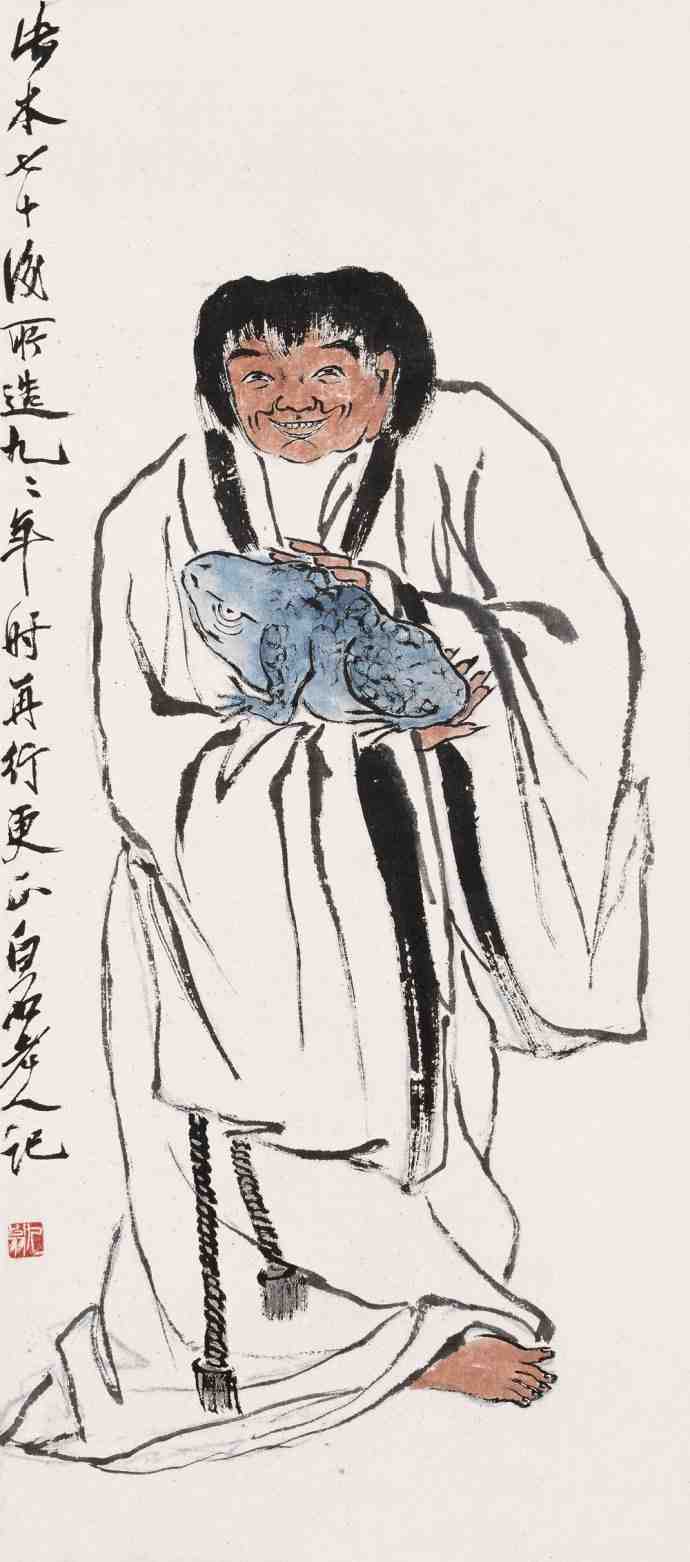 此本七十後所造九二年时再行更正白石老人記